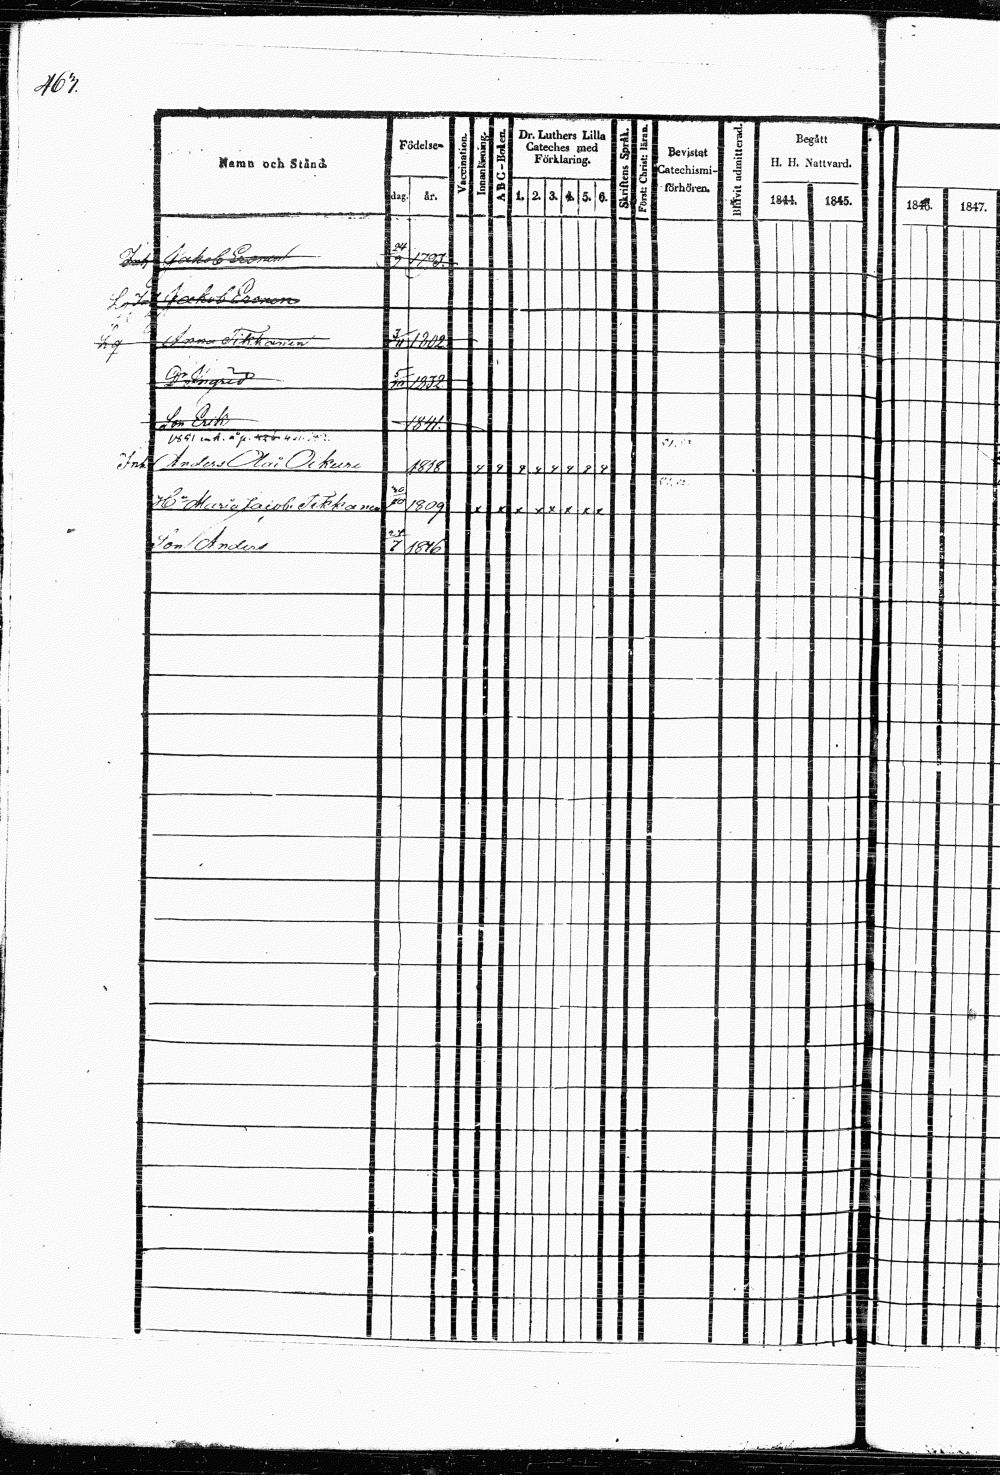 463.
Namn och Stånd.
Födelse-
dag. år.
Vaccination.
Innanläsning.
A B C - Boken.
Dr. Luthers Lilla
Cateches med
Förklaring.
1. 2. 3. 4. 5. 6.
Skriftens Språk.
Först: Christ: läran.
Bevistat
Catechismi-
förhören.
Blifvit admitterad.
Begått
H. H. Nattvard.
1844. 1845.
1846. 1847.
Inh Jakob Eronen 24/9 1793.
Jakob Eronen
Anna Tikkanen 3/11 1802
Dr Ingrid 5/10 1832
Son Erik 1841.
Inh Anders Olai 1818
Hu Maria Jacobs Tikkanen 30/10 1809
Son Anders 24/7 1846